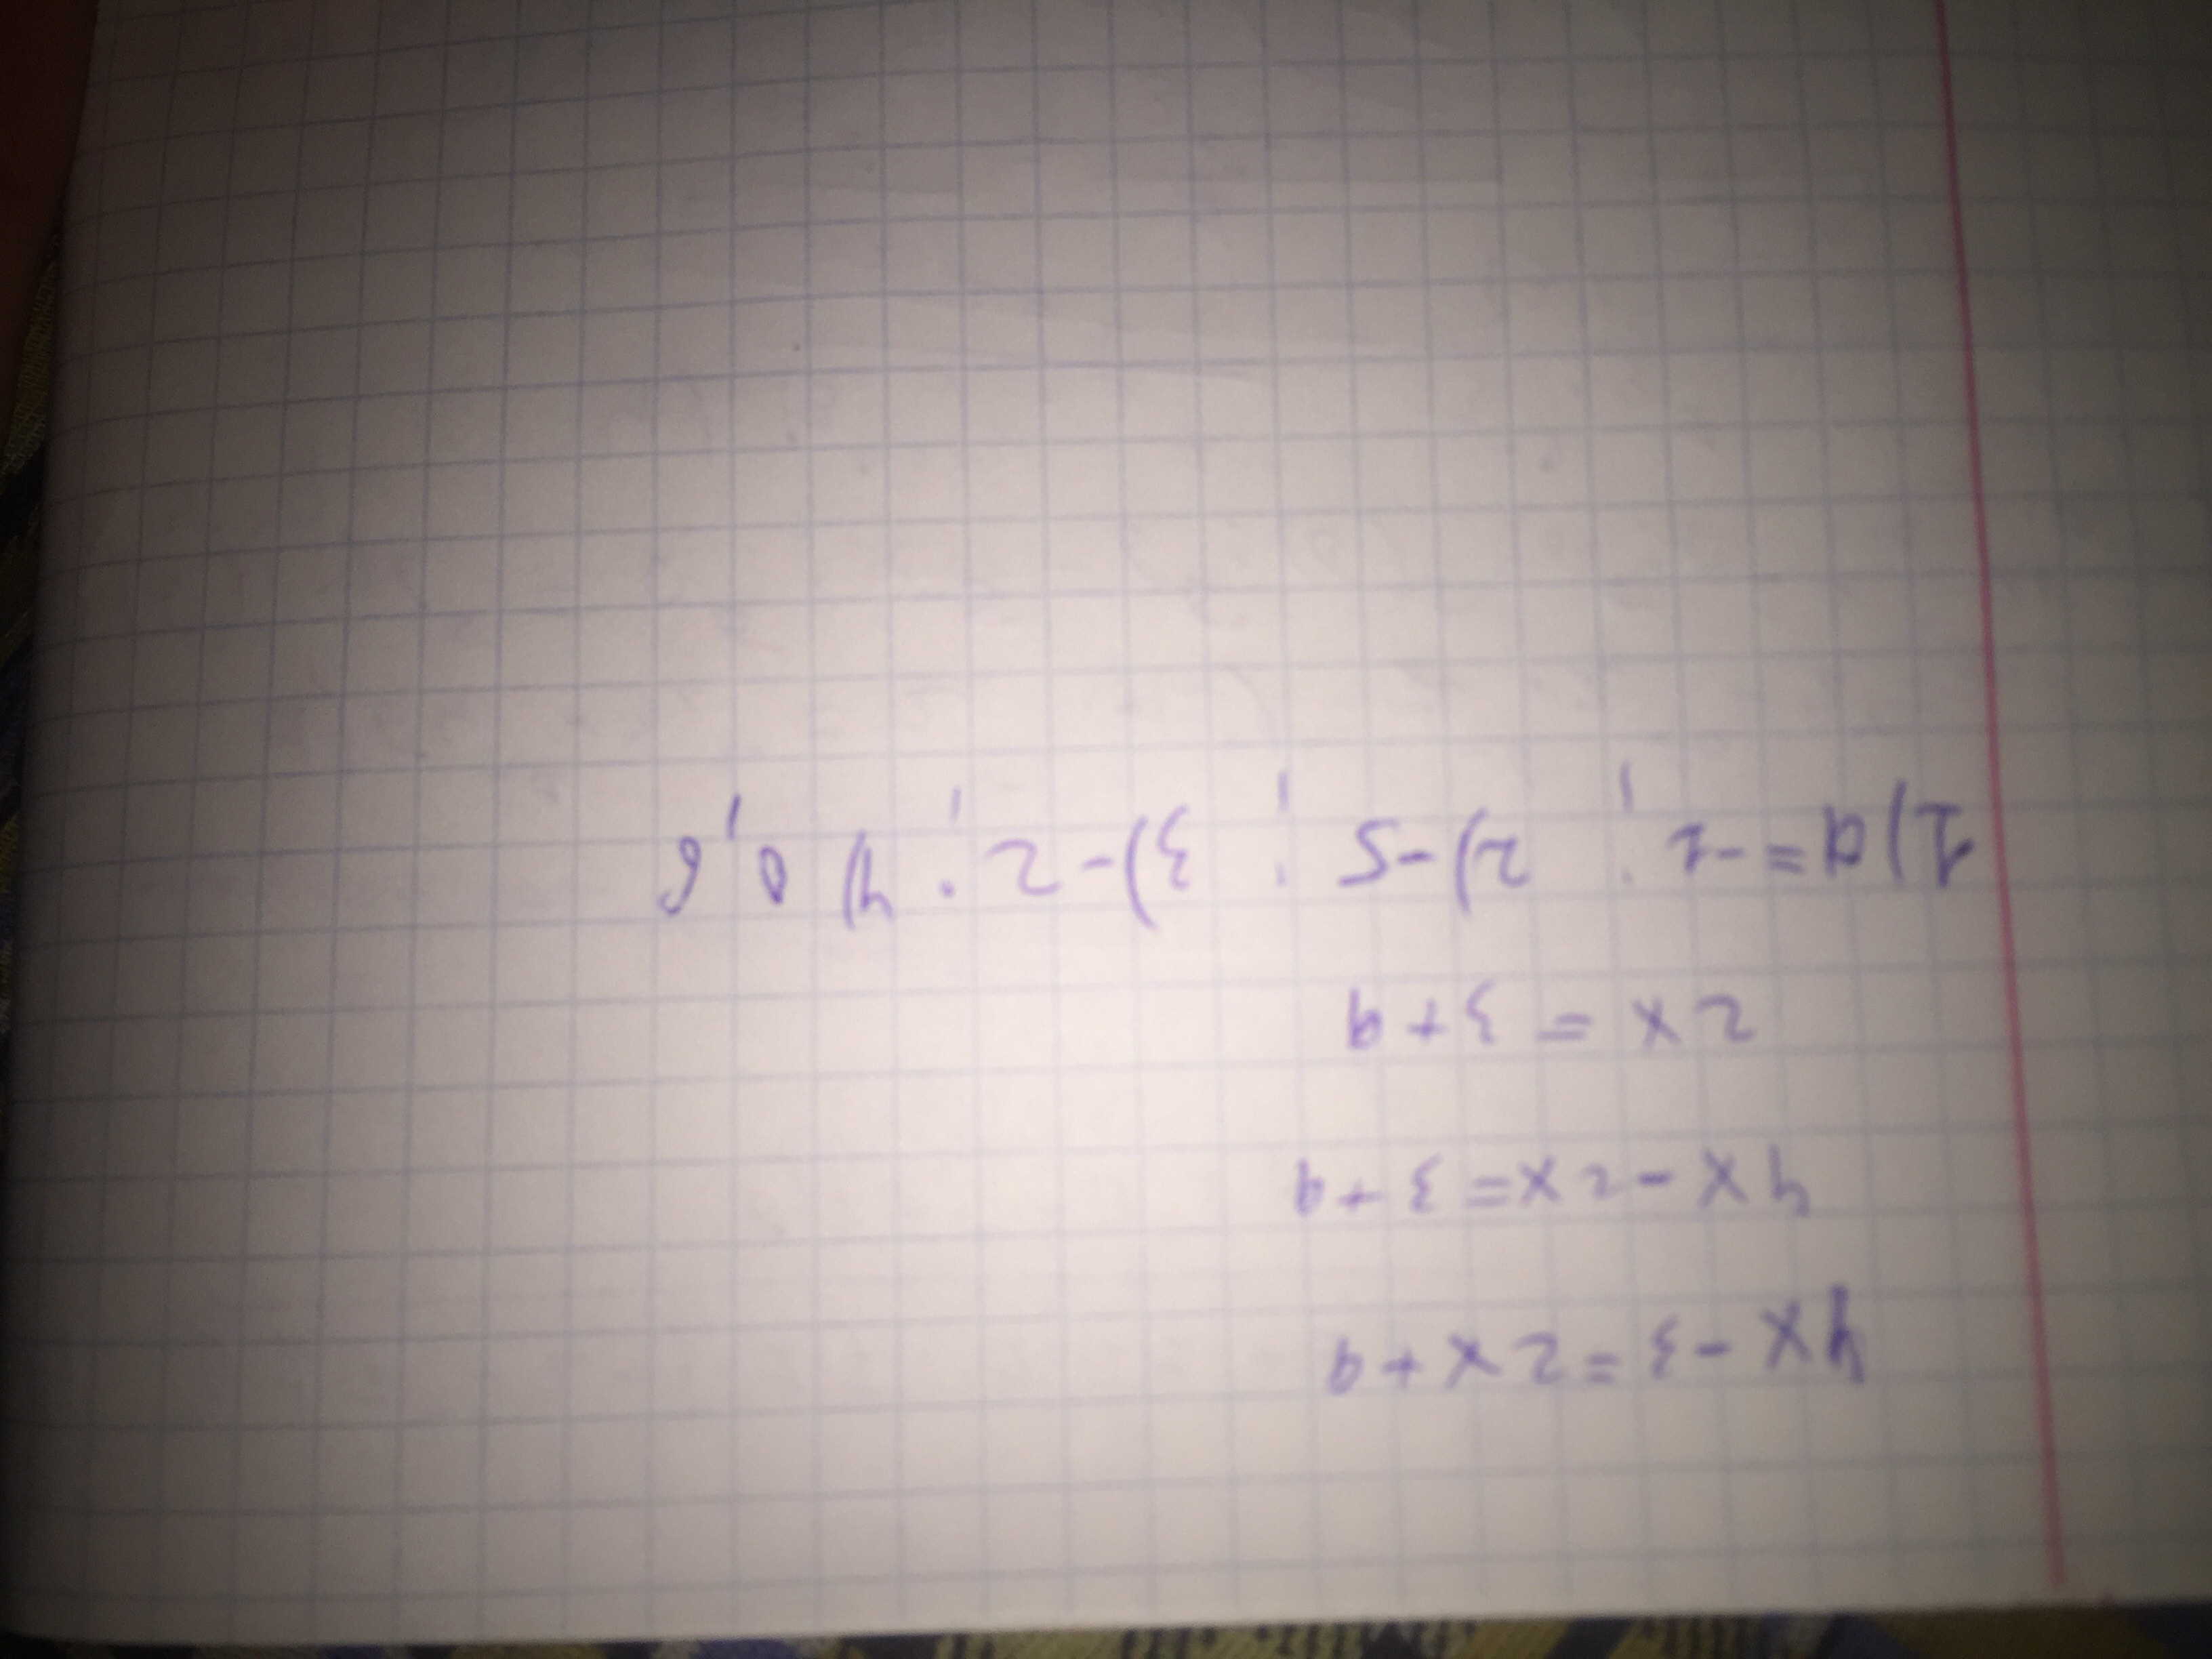 4x - 3 = 2x + a
4x - 2x = 3 + a
2x = 3 + a
1) a = -1; 2) -5; 3) -2; 4) 0,6